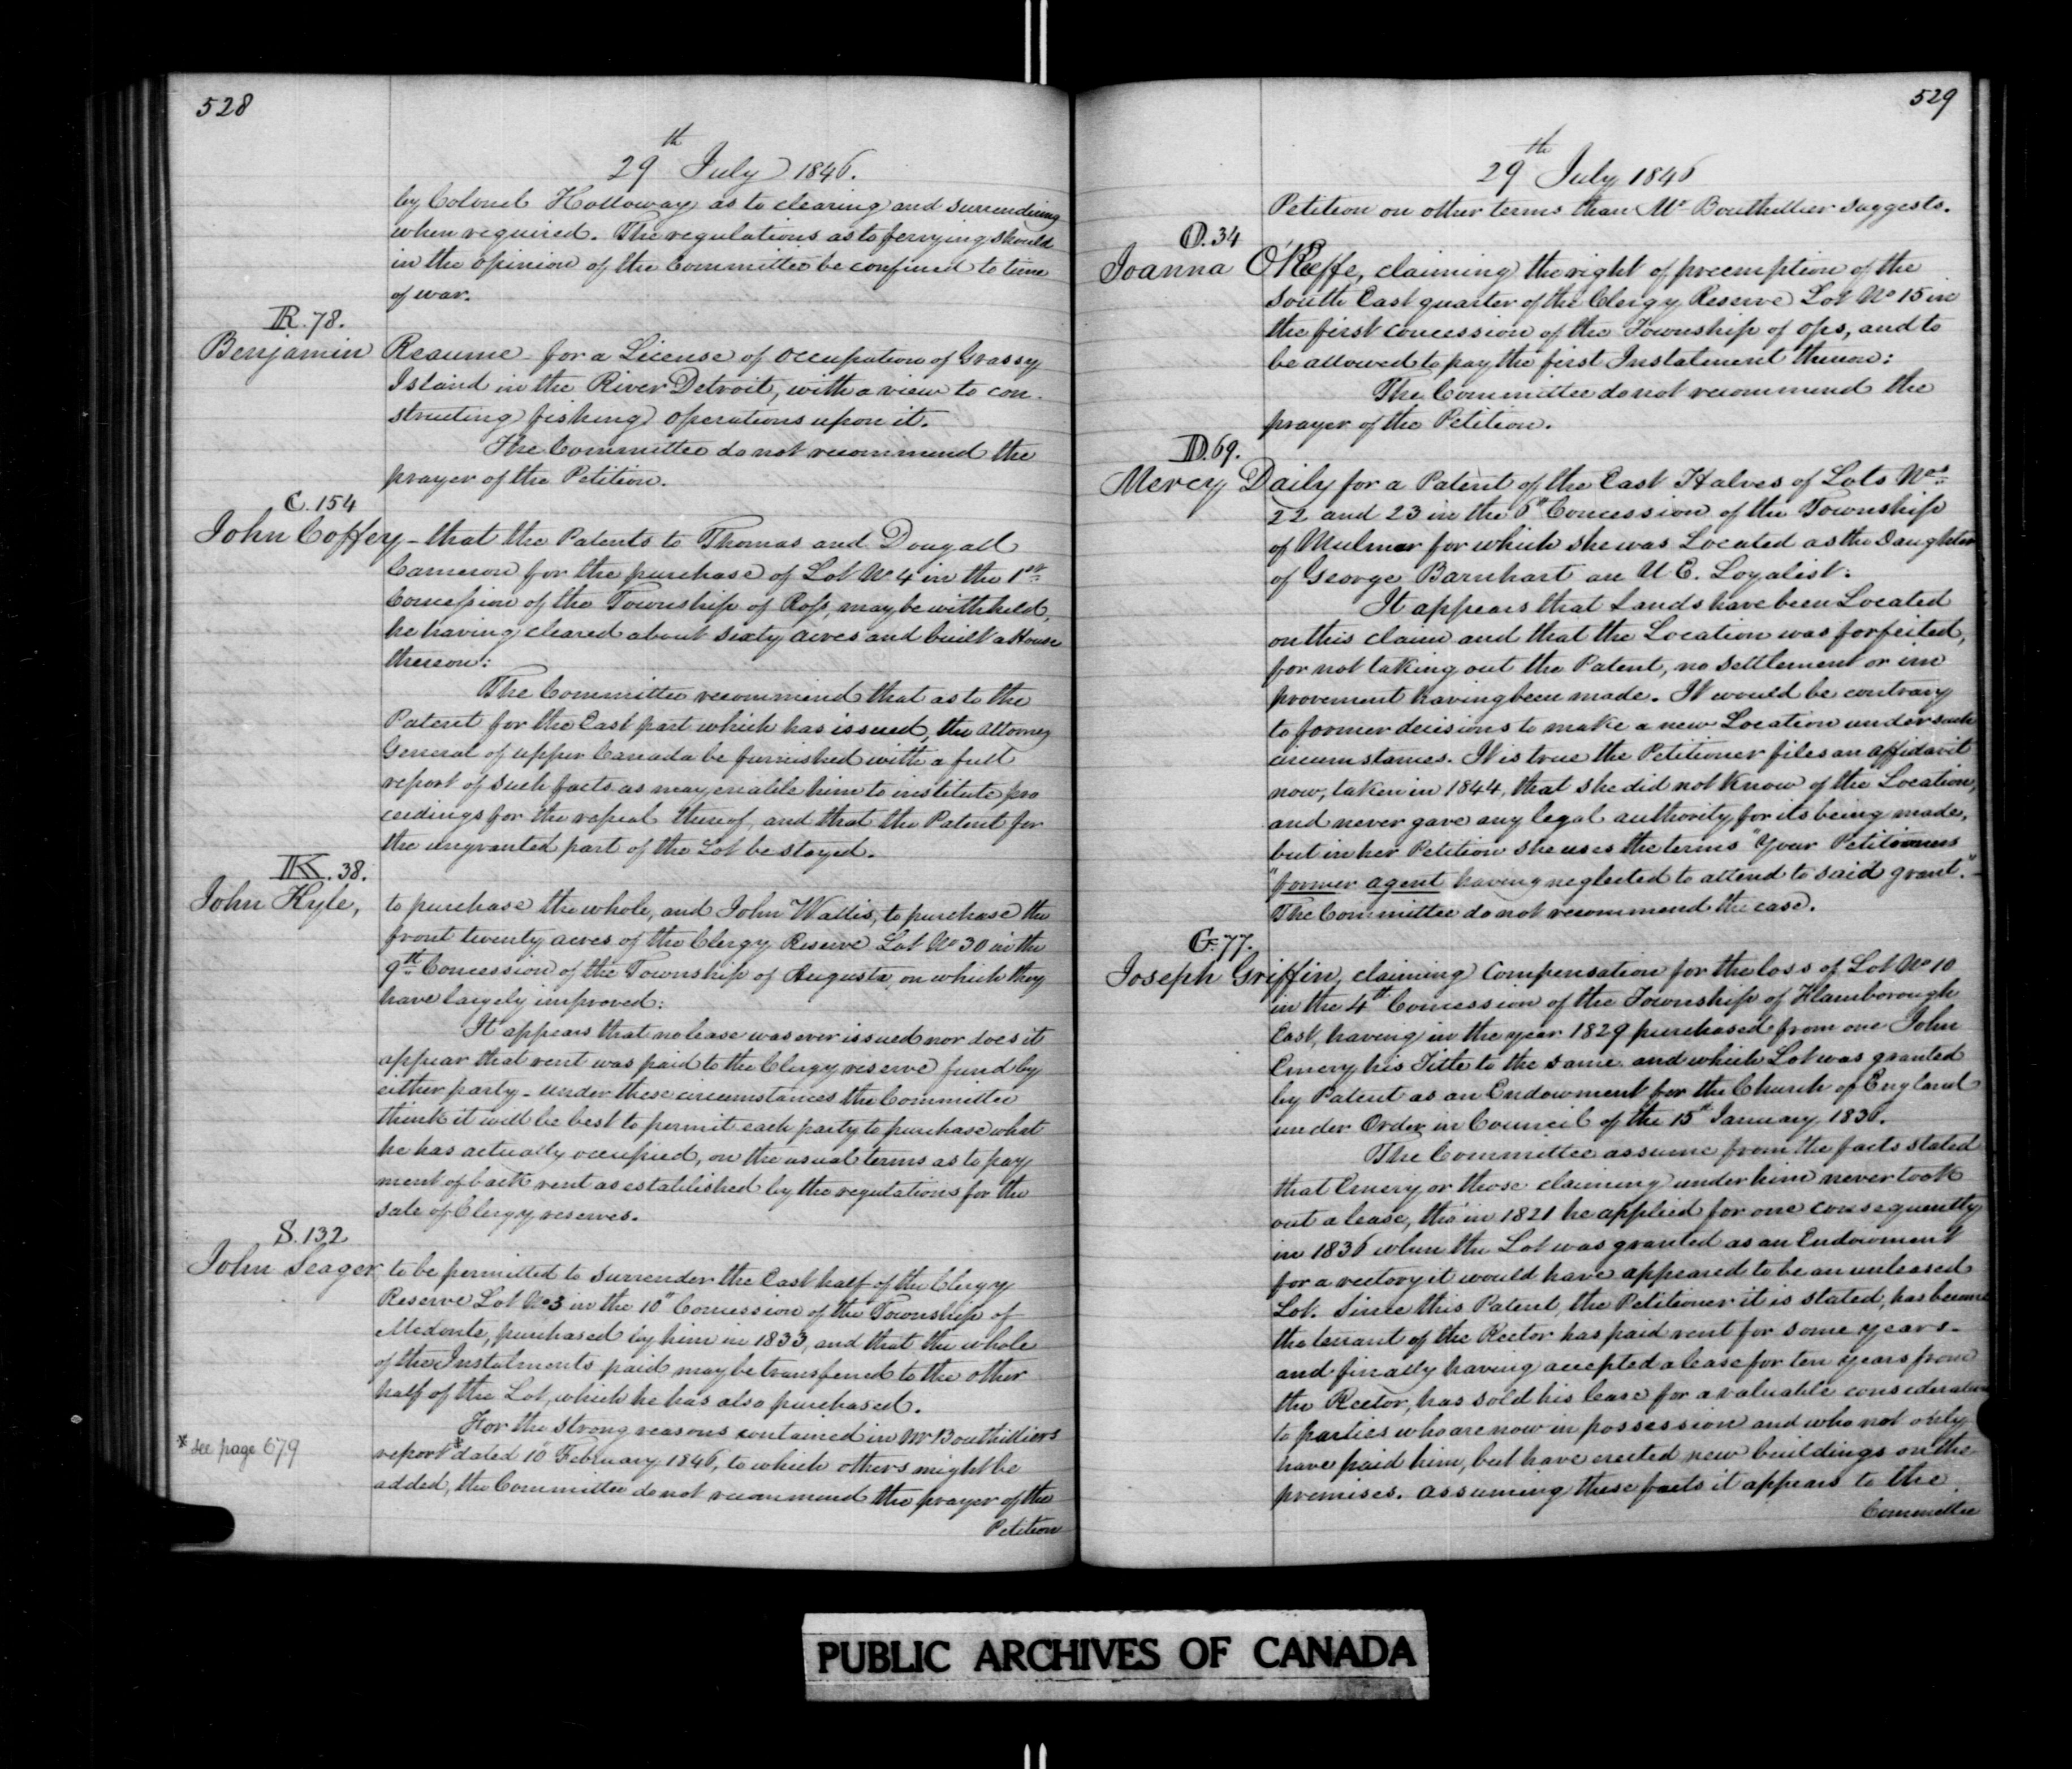 528
29th July 1846.
by Colonel Holloway as to clearing and surrendering
when required. The regulations as to ferrying should
in the opinion of the Committee be confined to time
of war.
R. 78.
Benjamin Reaume for a License of occupation of Grassy
Island in the River Detroit, with a view to con-
structing fishing operations upon it.
The Committee do not recommend the
prayer of the Petition.
C. 154
John Coffey - that the Patents to Thomas and Dougall
Cameron for the purchase of Lot No 4 in the 1st
Concession of the Township of Ross, may be withheld,
he having cleared about sixty acres and built a House
thereon:
The Committee recommend that as to the
Patent for the East part which has issued, the Attorney
General of upper Canada be furnished with a full
report of such facts as may enable him to institute pro
ceedings for the repeal thereof, and that the Patent for
the ungranted part of the Lot be stayed.
K. 38.
John Kyle, to purchase the whole, and John Wallis, to purchase the
front twenty acres of the Clergy Reserve Lot No 30 in the
9th Concession of the Township of Augusta, on which they
have largely improved:
It appears that no lease was ever issued nor does it
appear that rent was paid to the Clergy reserve fund by
either party - under these circumstances the Committee
think it will be best to permit each party to purchase what
he has actually occupied, on the usual terms as to pay
ment of back rent as established by the regulations for the
sale of Clergy reserves.
S. 132
John Seager, to be permitted to surrender the East half of the Clergy
Reserve Lot No 3 in the 10th Concession of the Township of
Medonte, purchased by him in 1833, and that the whole
of the Instalments paid may be transferred to the other
half of the Lot, which he has also purchased.
For the strong reasons contained in Mr Bouthilliers
* see page 679
report* dated 10th February 1846, to which others might be
added, the Committee do not recommend the prayer of the
Petition
529
29th July 1846
Petition on other terms than Mr Bouthillier suggests.
O. 34
Joanna O'Keeffe, claiming the right of preemption of the
South East quarter of the Clergy Reserve Lot No 15 in
the first concession of the Township of Ops, and to
be allowed to pay the first Instalment thereon:
The Committee do not recommend the
prayer of the Petition.
D. 69.
Mercy Daily for a Patent of the East Halves of Lots Nos
22 and 23 in the 6th Concession of the Township
of Mulmer for which she was Located as the Daughter
of George Barnhart an U E. Loyalist:
It appears that Lands have been Located
on this claim and that the Location was forfeited,
for not taking out the Patent, no settlement or im
provement having been made. It would be contrary
to former decisions to make a new Location under such
circumstances. It is true the Petitioner files an affidavit
now, taken in 1844, that she did not know of the Location,
and never gave any legal authority for its being made,
but in her Petition she uses the terms "Your Petitioners
"former agent having neglected to attend to said grant." -
The Committee do not recommend the case.
G. 77.
Joseph Griffin, claiming Compensation for the loss of Lot No 10
in the 4th Concession of the Township of Flamborough
East, having in the year 1829 purchased from one John
Emery his Title to the same and which Lot was granted
by Patent as an Endowment for the Church of England
under Order in Council of the 15th January 1836.
The Committee assume from the facts stated
that Emery or those claiming under him never took
out a lease, tho' in 1821 he applied for one consequently
in 1836 when the Lot was granted as an Endowment
for a rectory it would have appeared to be an unleased
Lot. Since this Patent, the Petitioner it is stated, has become
the tenant of the Rector has paid rent for some years -
and finally having accepted a lease for ten years from
the Rector, has sold his lease for a valuable consideration
to parties who are now in possession and who not only
have paid him, but have erected new buildings on the
premises. assuming these facts it appears to the
Committee
PUBLIC ARCHIVES OF CANADA